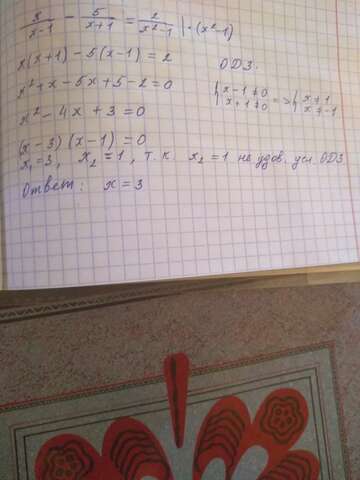 x/(x-1) - 5/(x+1) = 2/(x²-1) | · (x²-1)
x(x+1) - 5(x-1) = 2
ОДЗ:
x² + x - 5x + 5 - 2 = 0
{ x-1 ≠ 0 x+1 ≠ 0 => { x ≠ 1 x ≠ -1
x² - 4x + 3 = 0
(x-3)(x-1) = 0
x₁ = 3, x₂ = 1, т.к. x₂ = 1 не удов. усл ОДЗ
Ответ: x = 3